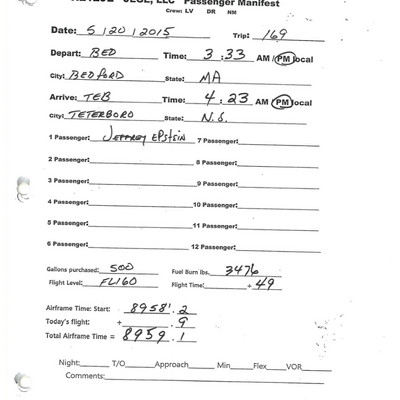 JEGE, LLC Passenger Manifest
Crew: LV DR NM
Date: 5/20/2015 Trip: 169
Depart: BED Time: 3:33 AM/PM local
City: BEDFORD State: MA
Arrive: TEB Time: 4:23 AM/PM local
City: TETERBORO State: N.J.
1 Passenger: JEFFREY EPSTEIN 7 Passenger:
2 Passenger: 8 Passenger:
3 Passenger: 9 Passenger:
4 Passenger: 10 Passenger:
5 Passenger: 11 Passenger:
6 Passenger: 12 Passenger:
Gallons purchased: 500 Fuel Burn lbs. 3476
Flight Level: FL160 Flight Time: + 49
Airframe Time: Start: 8958.2
Today's flight: + .9
Total Airframe Time = 8959.1
Night: T/O Approach Min Flex VOR
Comments: